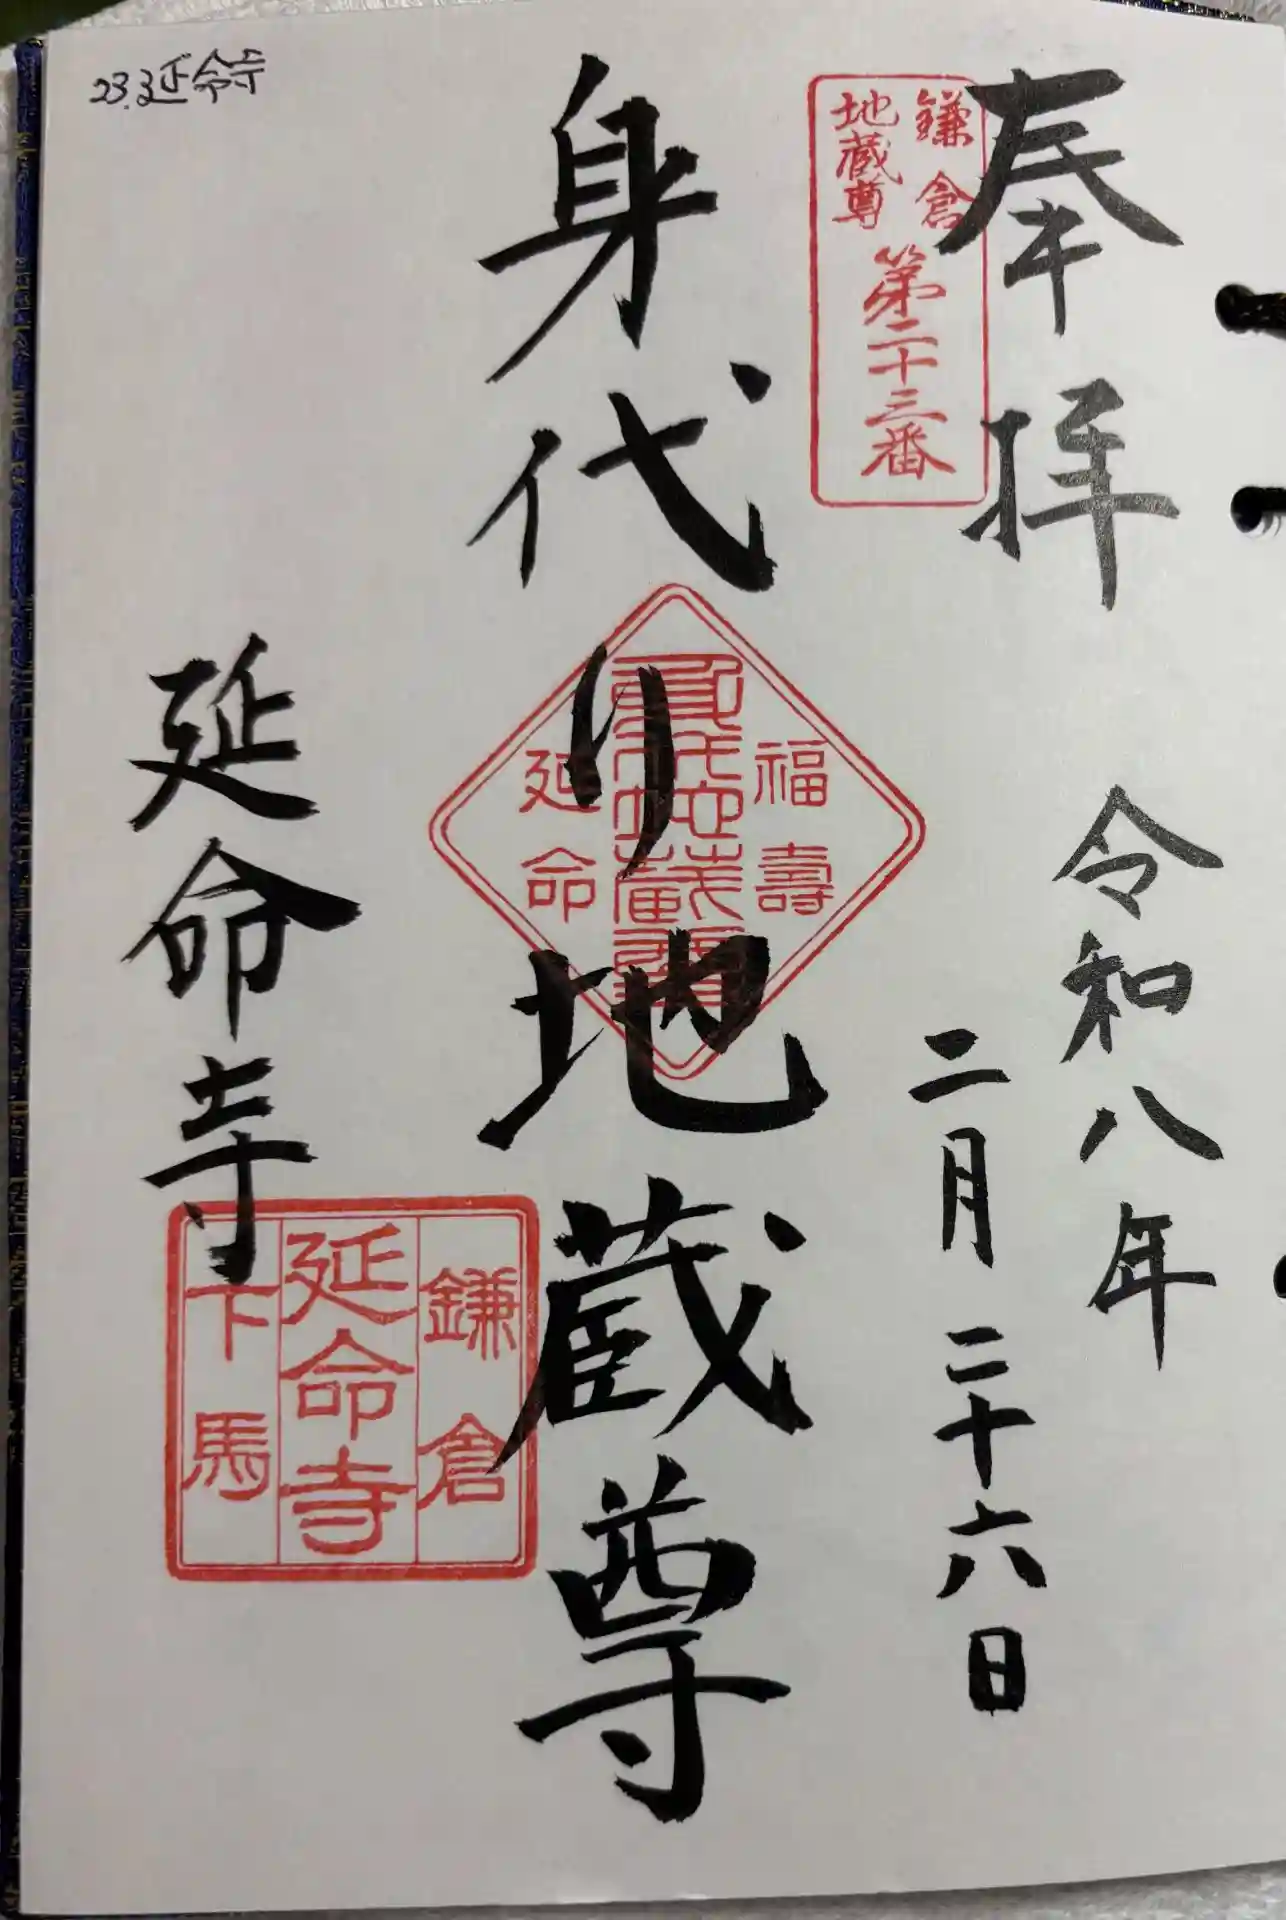 23.延命寺
奉拝
鎌倉
地蔵尊
第二十三番
令和八年
二月二十六日
身代り地蔵尊
福壽
身代地蔵尊
延命
延命寺
鎌倉
延命寺
下馬